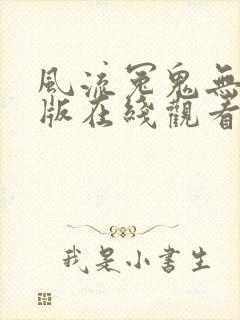 風流冤鬼無
版在綫觀看
我是小書生